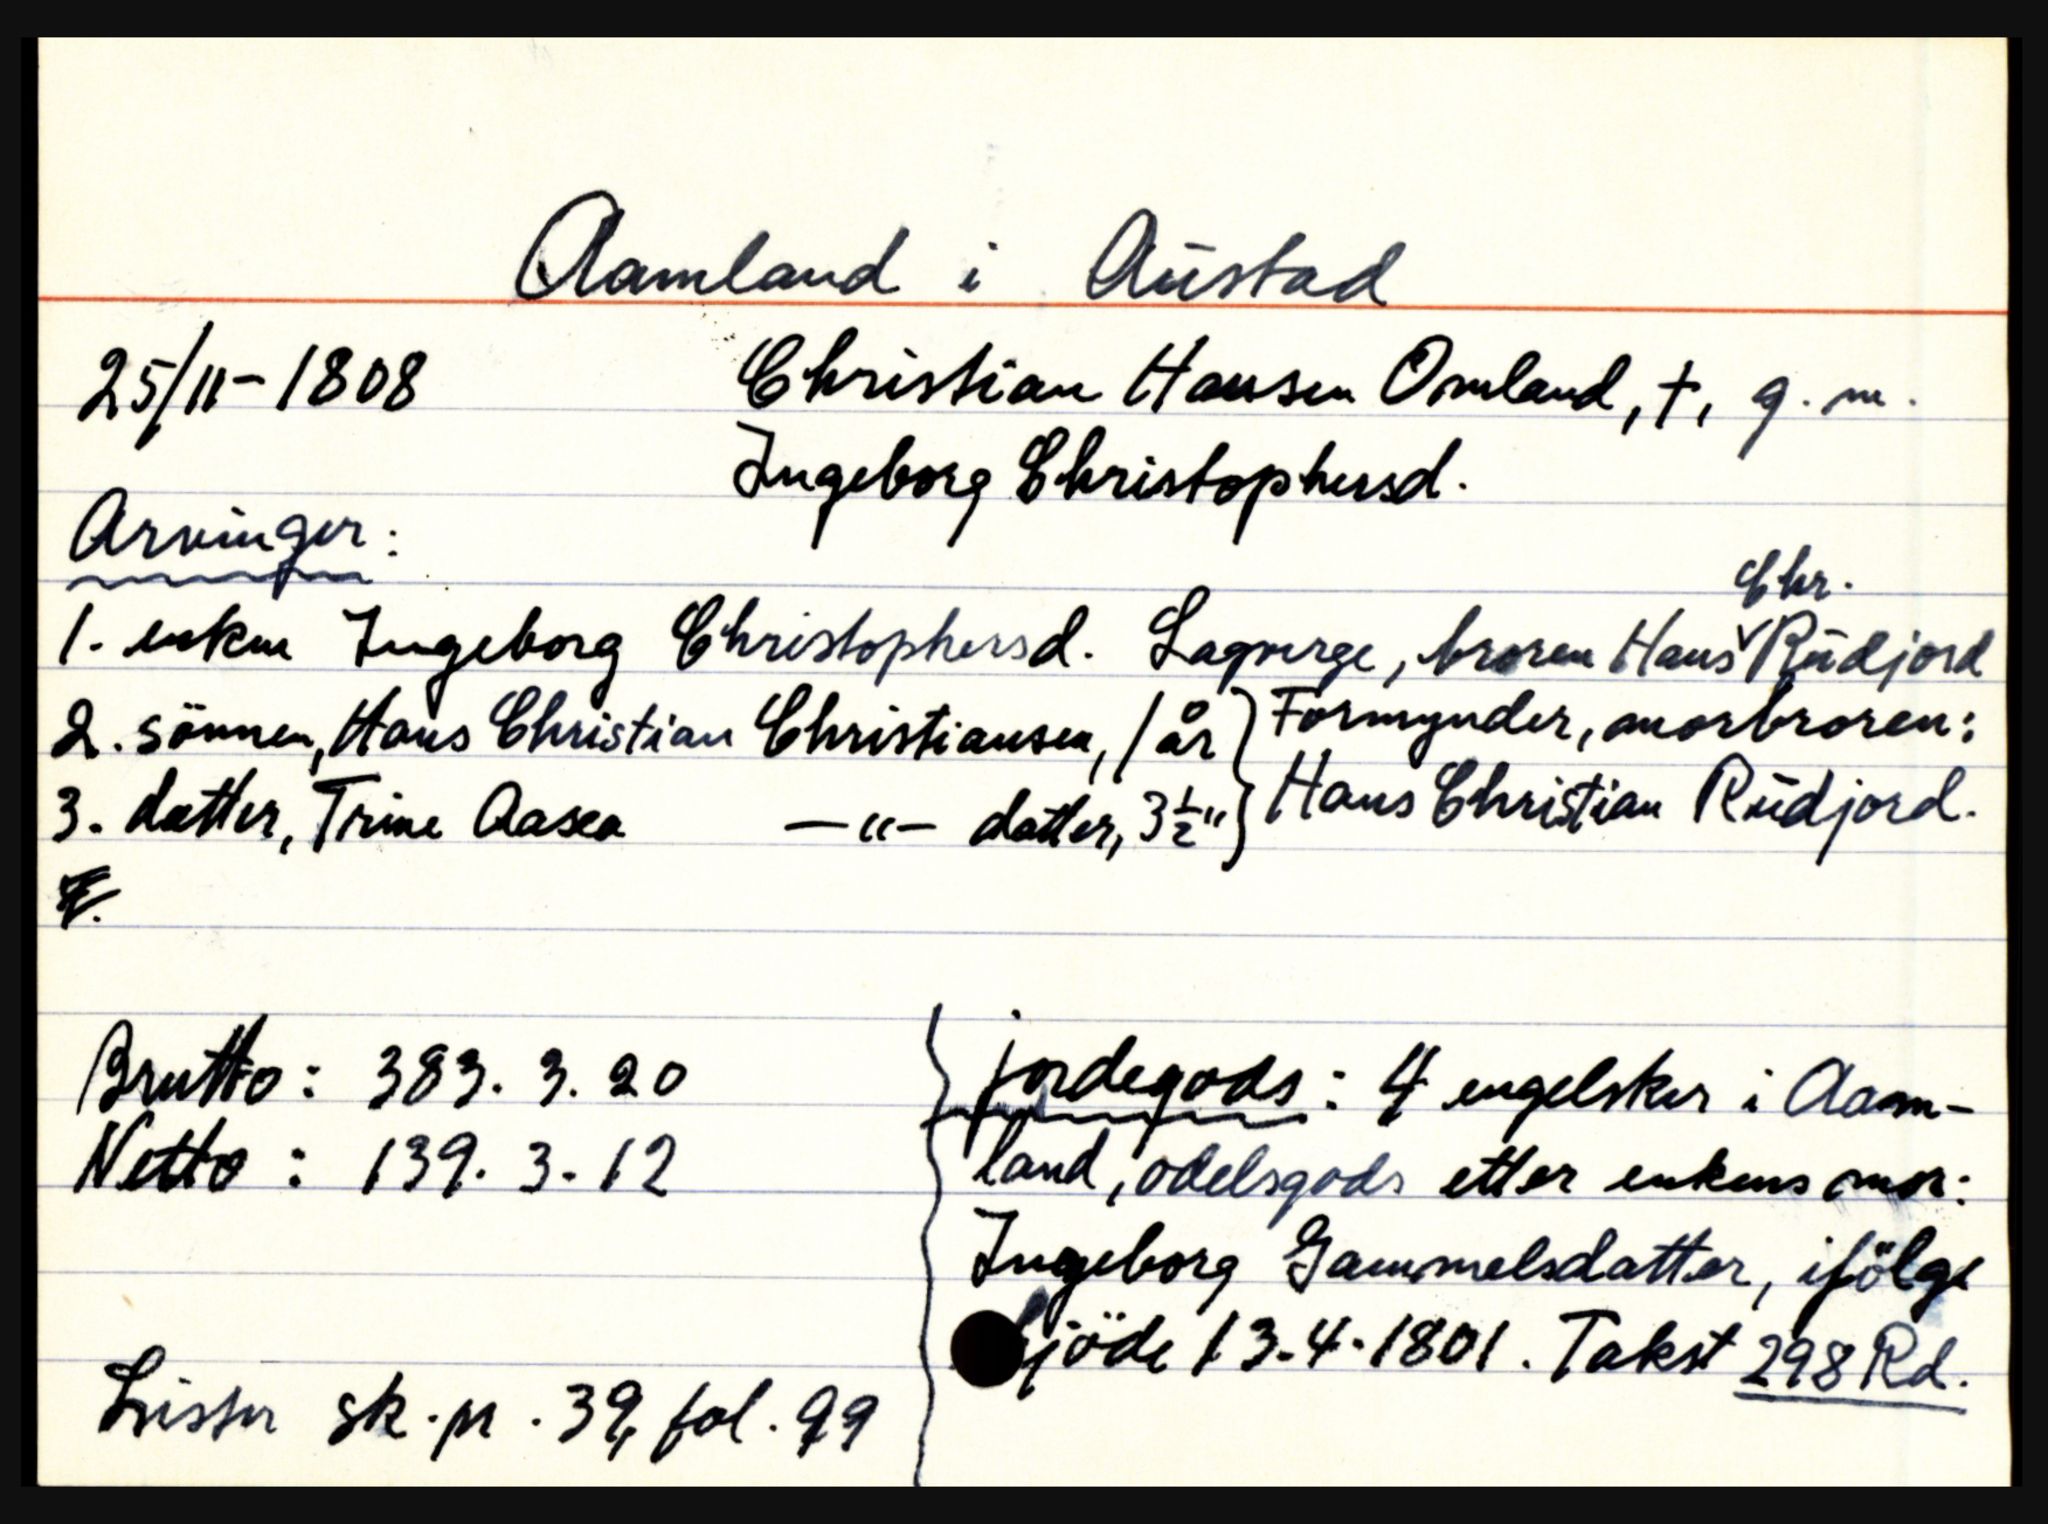 Aamland i Austad
25/11-1808 Christian Hansen Omland, †, g. m.
Ingeborg Christophersd.
Arvinger:
1. enken Ingeborg Christophersd. Lagverge, broren Hans Chr. Rudjord
2. sönnen, Hans Christian Christiansen, 1 år } Formynder, morbroren:
3. datter, Trine Aasea —"— datter, 3½ " } Hans Christian Rudjord.
Brutto: 383. 3. 20
Netto: 139. 3. 12
jordegods: 4 engelsker i Aam-
land, odelsgods etter enkens mor:
Ingeborg Gammelsdatter, ifölge
skjöde 13-4-1801. Takst 298 Rd.
Lister sk. pr. 39, fol. 99